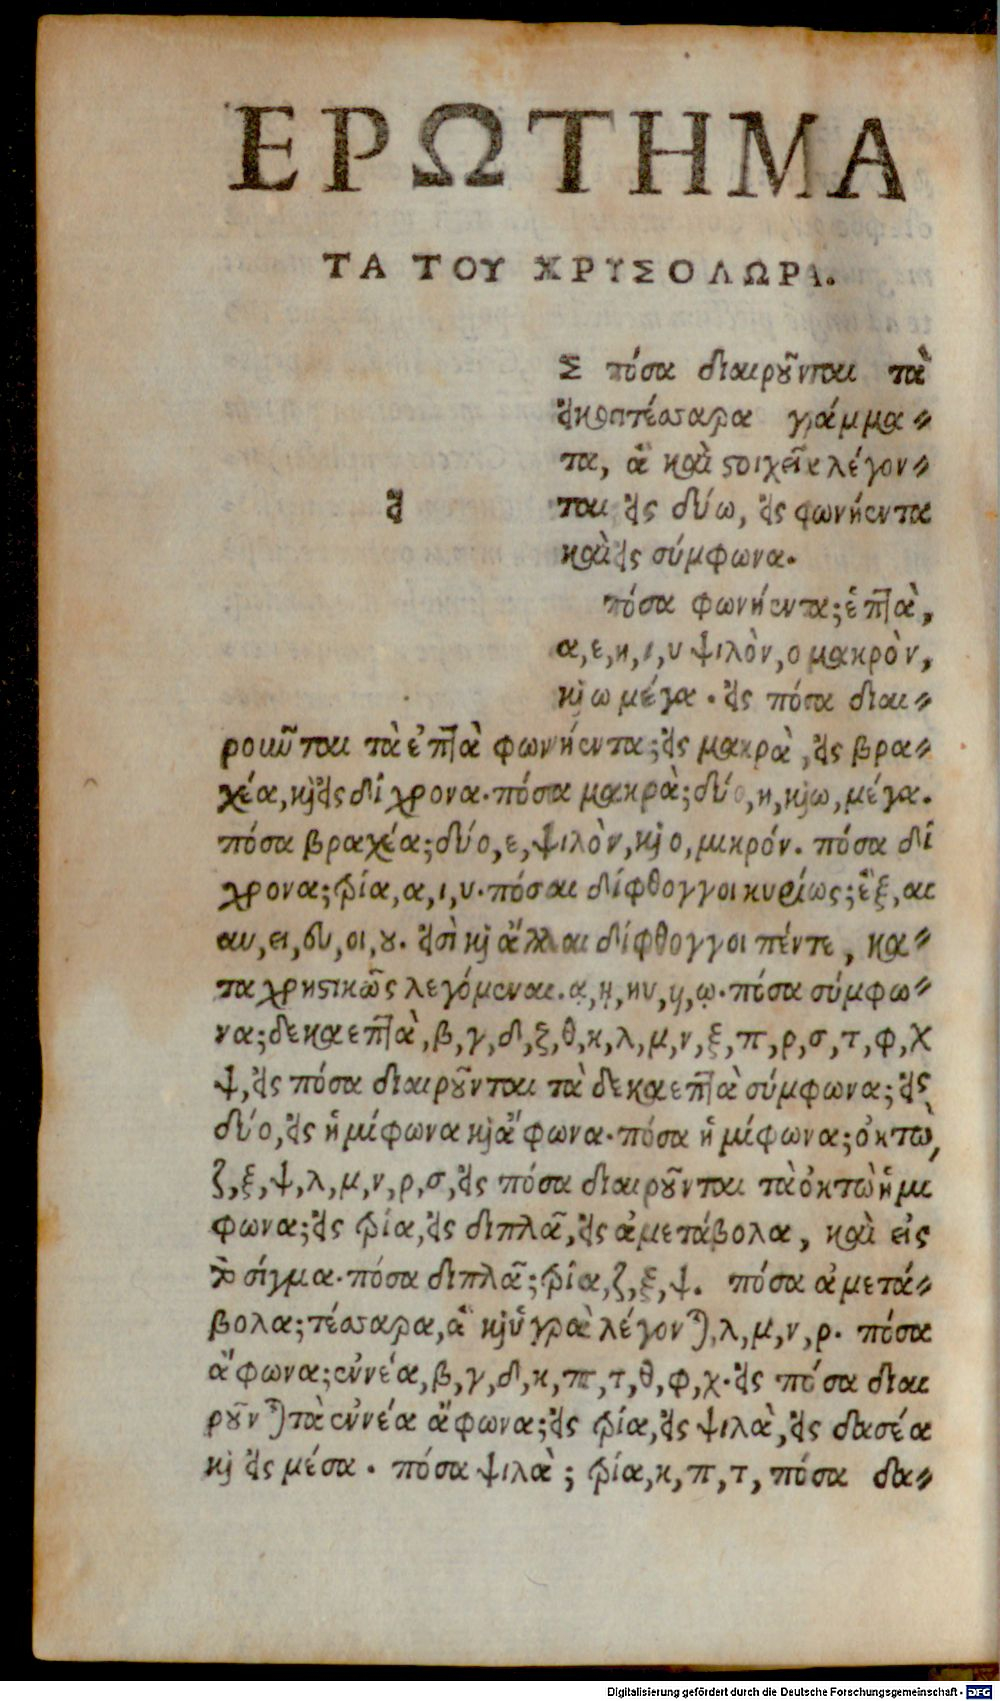 ΕΡΩΤΗΜΑ
ΤΑ ΤΟΥ ΧΡΥΣΟΛΩΡΑ.
εἰ
Σ πόσα διαιροῦνται τὰ
εἰκοσιτέσσαρα γράμμα⸗
τα, ἃ καὶ στοιχεῖα λέγον⸗
ται εἰς δύω, εἰς φωνήεντα
καὶ εἰς σύμφωνα.
πόσα φωνήεντα; ἑπτὰ,
α, ε, η, ι, υ ψιλὸν, ο μακρὸν,
καὶ ω μέγα. εἰς πόσα διαι⸗
ροιῦται τὰ ἑπτὰ φωνήεντα; εἰς μακρὰ, εἰς βρα⸗
χέα, καὶ εἰς δί χρονα. πόσα μακρὰ; δύο, η, καὶ ω, μέγα.
πόσα βραχέα; δύο, ε, ψιλὸν, καὶ ο, μικρόν. πόσα δί
χρονα; τρία, α, ι, υ. πόσαι δίφθογγοι κυρίως; ἓξ, αι
αυ, ει, ευ, οι, ου. εἰσὶ καὶ ἄλλαι δίφθογγοι πέντε, κα⸗
τα χρηστικῶς λεγόμεναι. ᾳ, ῃ, ηυ, υι, ῳ. πόσα σύμφω⸗
να; δεκαεπτὰ, β, γ, δ, ξ, θ, κ, λ, μ, ν, ξ, π, ρ, σ, τ, φ, χ
ψ, εἰς πόσα διαιροῦνται τὰ δεκαεπτὰ σύμφωνα; εἰς
δύο, εἰς ἡμίφωνα καὶ ἄφωνα. πόσα ἡμίφωνα; ὀκτὼ,
ζ, ξ, ψ, λ, μ, ν, ρ, σ, εἰς πόσα διαιροῦνται τὰ ὀκτὼ ἡμι
φωνα; εἰς τρία, εἰς διπλᾶ, εἰς ἀμετάβολα, καὶ εἰς
τὸ σίγμα. πόσα διπλᾶ; τρία, ζ, ξ, ψ. πόσα ἀμετά⸗
βολα; τέσσαρα, ἃ καὶ ὑγρὰ λέγονται, λ, μ, ν, ρ. πόσα
ἄφωνα; ἐννέα, β, γ, δ, κ, π, τ, θ, φ, χ. εἰς πόσα διαι
ροῦνται τὰ ἐννέα ἄφωνα; εἰς τρία, εἰς ψιλὰ, εἰς δασέα
καὶ εἰς μέσα. πόσα ψιλὰ; τρία, κ, π, τ, πόσα δα⸗
Digitalisierung gefördert durch die Deutsche Forschungsgemeinschaft - DFG